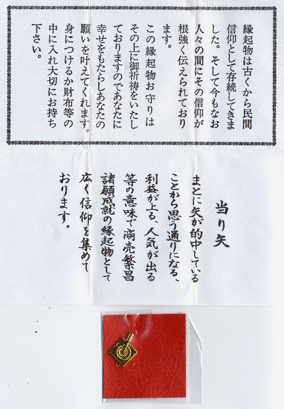 縁起物は古くから民間
信仰として存続してきま
した。そして今もなお
人々の間にその信仰が
根強く伝えられており
ます。
この縁起物お守りは
その上に御祈祷をいたし
ておりますのであなたに
幸せをもたらしあなたの
願いを叶えてくれます。
身につけるか財布等の
中に入れ大切にお持ち
下さい。
当り矢
まとに矢が的中している
ことから思う通りになる、
利益が上る、人気が出る
等の意味で商売繁昌
諸願成就の縁起物として
広く信仰を集めて
おります。